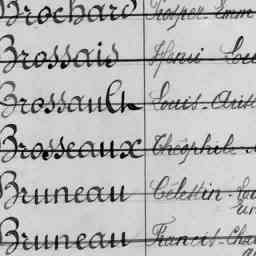 Brochard Prosper-Emm
Brossais Henri Lou
Brossault Louis-Arist
Brosseaux Théophile
Bruneau Célestin-Lou
Bruneau Francis-Cha